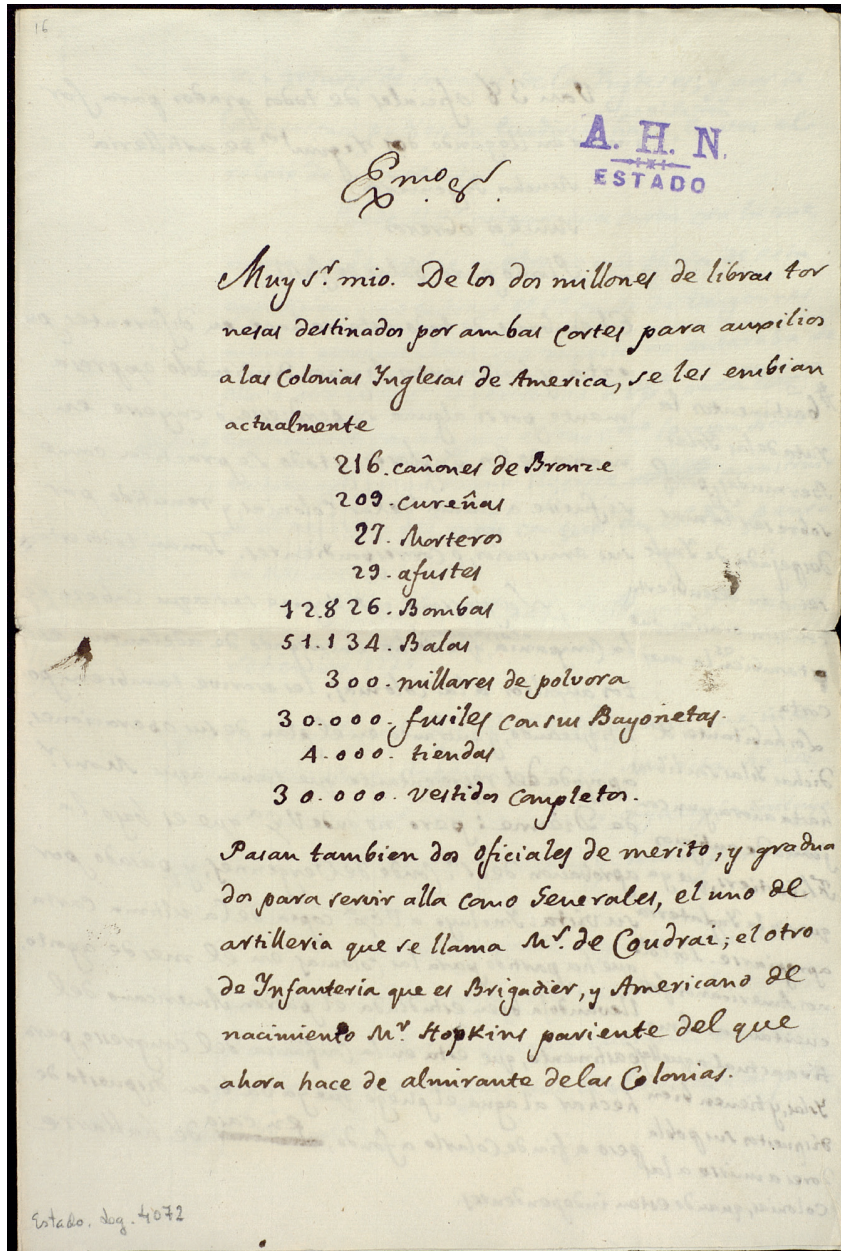 16
A. H. N.
ESTADO
Exmo. Sr.
Muy Sr. mio. De los dos millones de libras tor
nesas destinados por ambas Cortes para auxilios
a las Colonias Inglesas de America, se les embian
actualmente
216. cañones de Bronze
209. cureñas
27. Morteros
29. afustes
12.826. Bombas
51.134. Balas
300. millares de polvora
30.000. fusiles con sus Bayonetas.
4.000. tiendas
30.000. vestidos completos.
Pasan tambien dos oficiales de merito, y gradua
dos para servir alla como Generales, el uno de
artilleria que se llama Mr. de Coudrai; el otro
de Infanteria que es Brigadier, y Americano de
nacimiento Mr. Hopkins pariente del que
ahora hace de almirante de las Colonias.
Estado. Leg. 4072